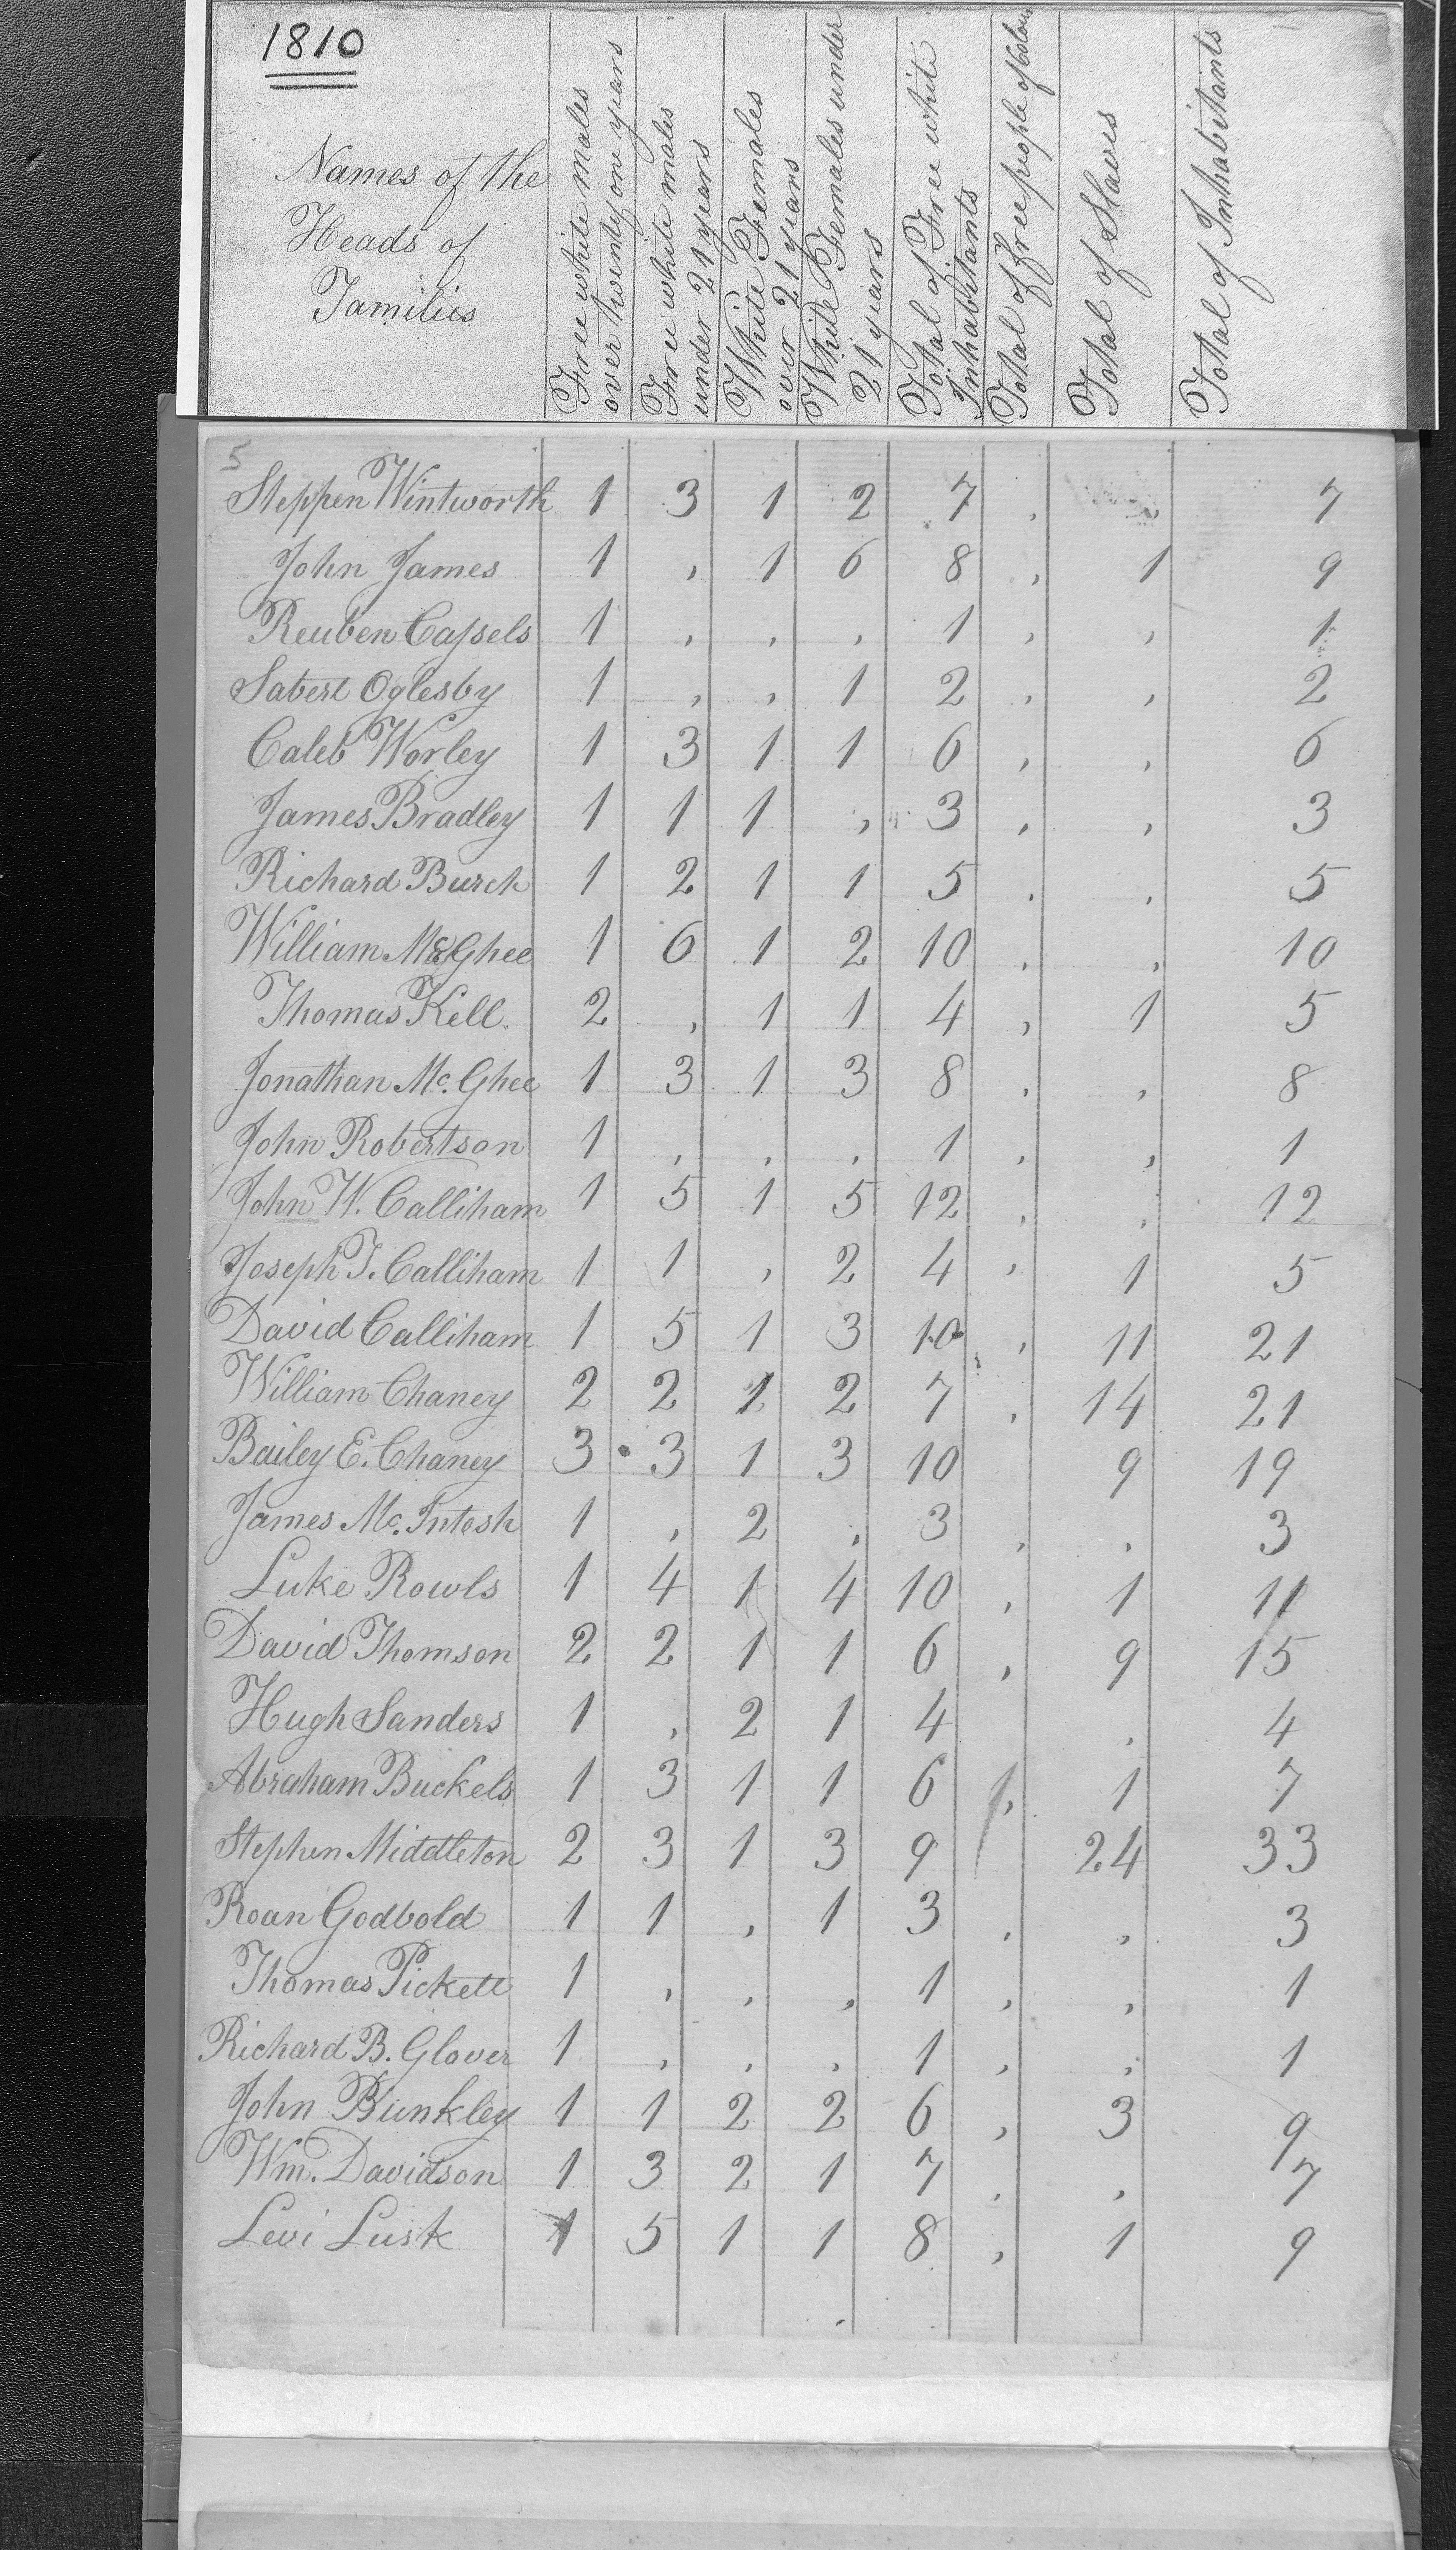 1810
Names of the
Heads of
Families
Free white males
over twenty one years
Free white males
under 21 years
White Females
over 21 years
White Females under
21 years
Total of Free white
Inhabitants
Total of free people of Colour
Total of Slaves
Total of Inhabitants
5
Steppen Wintworth 1 3 1 2 7 . , 7
John James 1 , 1 6 8 , 1 9
Reuben Caſsels 1 , , , 1 , , 1
Sabert Oglesby 1 , , 1 2 , , 2
Caleb Worley 1 3 1 1 6 , , 6
James Bradley 1 1 1 , 3 , , 3
Richard Burch 1 2 1 1 5 . , 5
William McGhee 1 6 1 2 10 , , 10
Thomas Kell. 2 , 1 1 4 , 1 5
Jonathan Mc. Ghee 1 3 1 3 8 , , 8
John Robertson 1 , , , 1 , , 1
John W. Calliham 1 5 1 5 12 , , 12
Joseph T. Calliham 1 1 , 2 4 , 1 5
David Calliham 1 5 1 3 10 , 11 21
William Chaney 2 2 1 2 7 , 14 21
Bailey E. Chaney 3 3 1 3 10 9 19
James Mc. Intosh 1 , 2 , 3 , , 3
Luke Rowls 1 4 1 4 10 , 1 11
David Thomson 2 2 1 1 6 , 9 15
Hugh Sanders 1 , 2 1 4 , 4
Abraham Buckels 1 3 1 1 6 , 1 7
Stephen Middleton 2 3 1 3 9 24 33
Roan Godbold 1 1 , 1 3 , , 3
Thomas Pickett 1 , , , 1 , , 1
Richard B. Glover 1 , , , 1 , , 1
John Bunkley 1 1 2 2 6 , 3 9
Wm. Davidson 1 3 2 1 7 , , 7
Levi Lusk 1 5 1 1 8 , 1 9